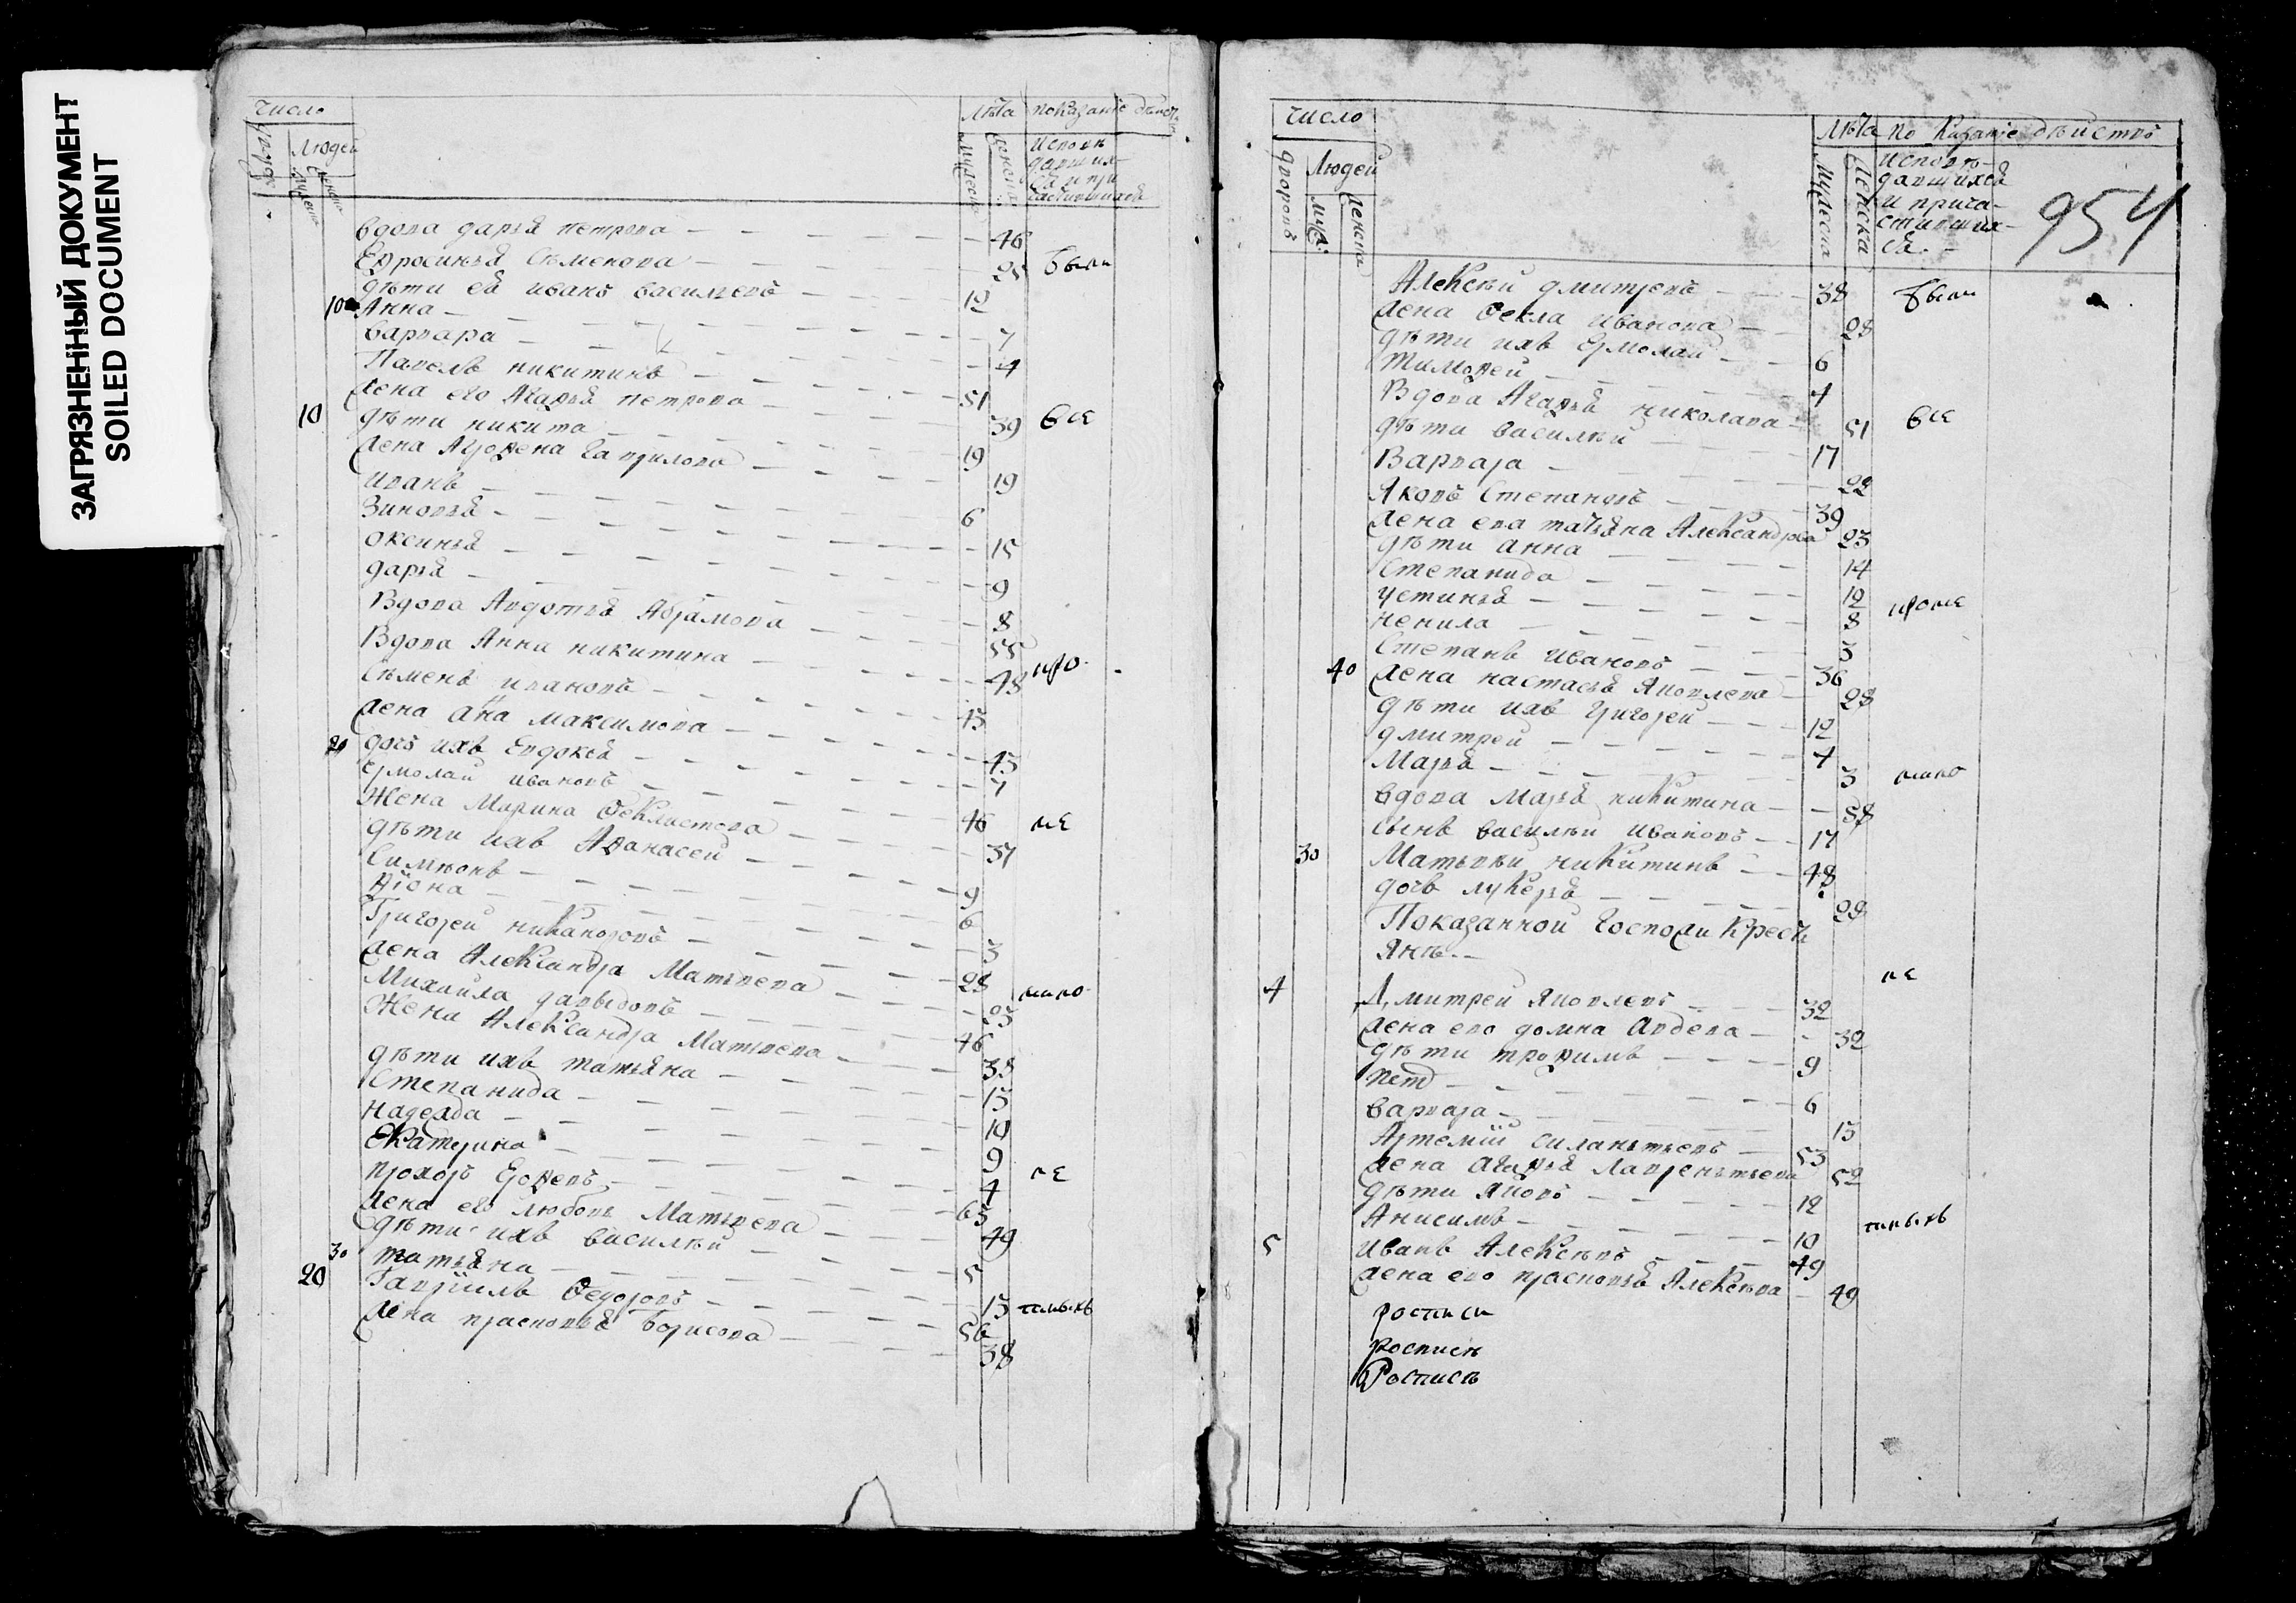 ЗАГРЯЗНЕННЫЙ ДОКУМЕНТ
SOILED DOCUMENT
число
Людей
Лѣта показаніе дѣйст
мужеска
женска
вдова дарья петрова 46
Ефросинья Сѣменова 25 были
дѣти ея иванъ васильевъ 12
10 Анна 7
варвара 4
Павелъ никитинъ 51
жена его Агафья петрова 39
10 дѣти никита 19 все
жена Агрофена гаврилова 19
иванъ 6
Зиновья 15
оксинья 9
дарья 8
Вдова Авдотья Абрамова 55
Вдова Анна никитина 48
Сѣменъ ивановъ 45
жена Анна максимова 45
20 дочь ихъ Евдокея 7
Ермолай ивановъ 46
Жена Марина Феклистова 37
дѣти ихъ Афанасей 9
Симѣонъ 6
Фіона 3
Григорей никаноровъ 28
жена Александра Матвѣева 25
Михайла давыдовъ 46
Жена Александра Матвѣева 38
дѣти ихъ татьяна 15
Степанида 10
надежда 9
Екатерина 4
прохоръ Ерофевъ 65
жена его любовь Матвѣева 49
дѣти ихъ василѣй 5
30 татьяна 15
20 Гавріилъ Федоровъ 56
жена прасковья Борисова 38
число
дворовъ
Людей
муж:
женска
Лѣта по казаніе дѣйствъ
мужеска
женска
исповѣ-
давшихся
и прича-
стивших-
ся. -
954
Алексѣй дмитревъ 38 были
жена Фекла иванова 28
дѣти ихъ Ермолай 6
тимофей 4
Вдова Агафья николава 51
дѣти василѣй 17 все
Варвара 22
Яковъ Степановъ 39
жена ево татьяна Александрова 23
дѣти анна 14
Степанида 12
устинья 8
ненила 3
Степанъ ивановъ 36
40 жена настасья Яковлева 28
дѣти ихъ григорей 12
дмитрей 4
Марья 3
вдова Марья никитина 58
сынъ василѣй ивановъ 17
30 Матвѣй никитинъ 48
дочь лукерья 28
Показанной госпожи Кресть
янѣ.
4 Дмитрей Яковлевъ 32
жена ево домна авдева 32
дѣти трофимъ 9
петр 6
варвара 15
Артемій силантьевъ 53
жена агафья лаврентьева 52
дѣти Яковъ 12
Анисимъ 10
5 иванъ Алексѣевъ 49
жена ево прасковья Алексѣева 49
росписи
росписи
Росписи